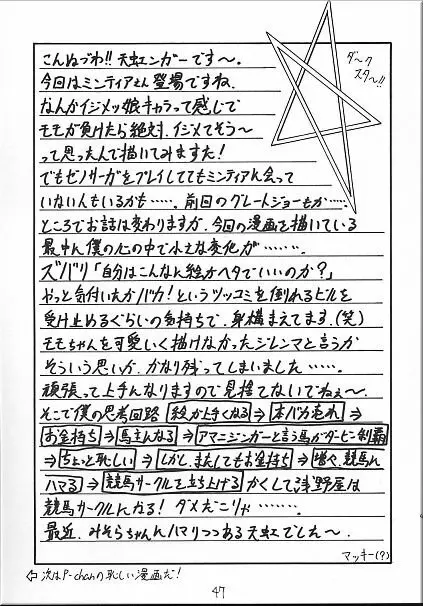 こんぬづわ!! 天虹ンガーです〜。
ダ〜ク
スタ〜!!
今回はミンティアさん登場ですね.
なんかイジメッ娘キャラって感じで
モモが負けたら絶対.イジメてそう〜
って思ったんで描いてみますた!
でもゼノサーガをプレイしててもミンティアに会って
いない人もいるかも……前回のグレートジョーもか……
ところでお話は変わりますが.今回の漫画を描いている
最中に僕の心の中で小さな変化が………
ズバリ「自分はこんなに絵がヘタでいいのか?」
やっと気付いたかバカ!というツッコミを倒れるビルを
受け止めるぐらいの気持ちで.身構えてます.(笑)
モモちゃんを可愛いく描けなかったジレンマと言うか
そういう思いが.かなり残ってしまいました……
頑張って上手になりますので見捨てないでねぇ〜.
そこで僕の思考回路 絵が上手くなる⇒本バカ売れ⇒
お金持ち⇒馬主になる⇒アマニジンガーと言う馬がダービー制覇
⇒ちょっと恥しい⇒しかし.またしてもお金持ち⇒増々.競馬に
ハマる⇒競馬サークルを立ち上げる かくして浅野屋は
競馬サークルになる! ダメだこりゃ………
最近.みそらちゃんにハマりつつある天虹でした〜.
マッキー(?)
⇦次はP-chanの恥しい漫画だ!
47